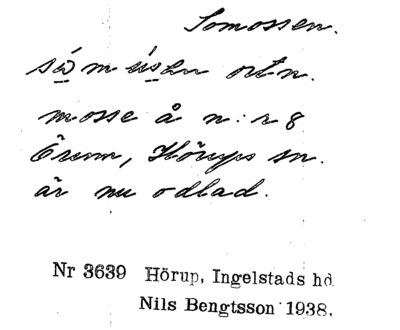 Somossen.
sómúsen ortn.
mosse å n:r 8
Örum, Hörups sn.
är nu odlad.
Nr 3639 Hörup, Ingelstads hd
Nils Bengtsson 1938.